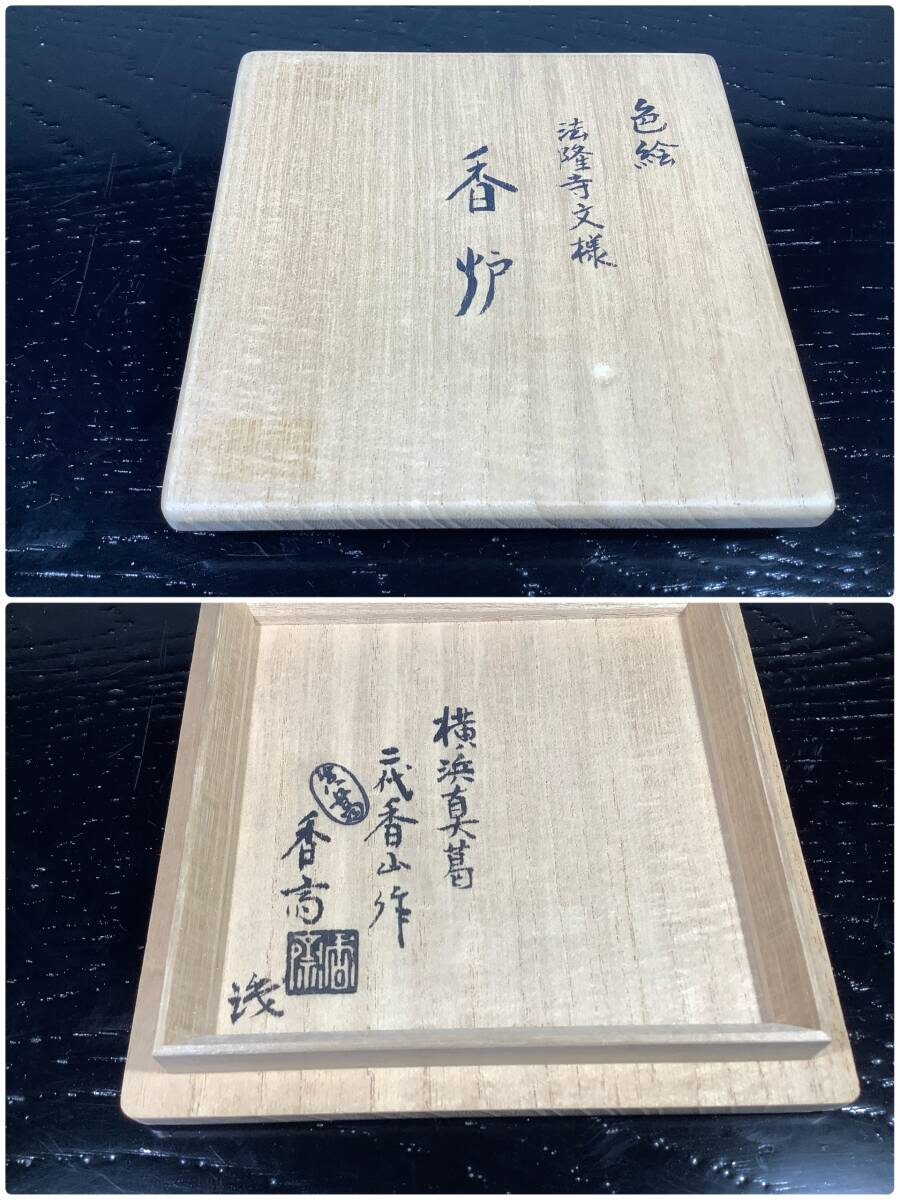 色絵
法隆寺文様
香炉
横浜真葛
二代香山作
真葛
香斎
香斎
識